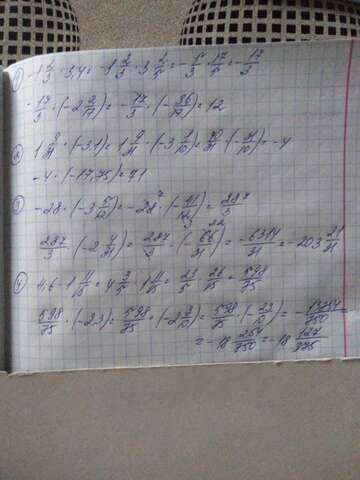 1) -1 2/3 · 3,4 = -1 2/3 · 3 2/5 = -5/3 · 17/5 = -17/3
-17/3 · (-2 2/17) = -17/3 · (-36/17) = 12
2) 1 9/31 · (-3,1) = 1 9/31 · (-3 1/10) = 40/31 · (-31/10) = -4
-4 · (-17,75) = 71
3) -28 · (-3 5/12) = -28 · (-41/12) = 287/3
287/3 · (-2 4/31) = 287/3 · (-66/31) = -6314/31 = -203 21/31
4) 4,6 · 1 11/15 = 4 3/5 · 1 11/15 = 23/5 · 26/15 = 598/75
598/75 · (-2,3) = 598/75 · (-2 3/10) = 598/75 · (-23/10) = -13754/750 =
= -18 254/750 = -18 127/375